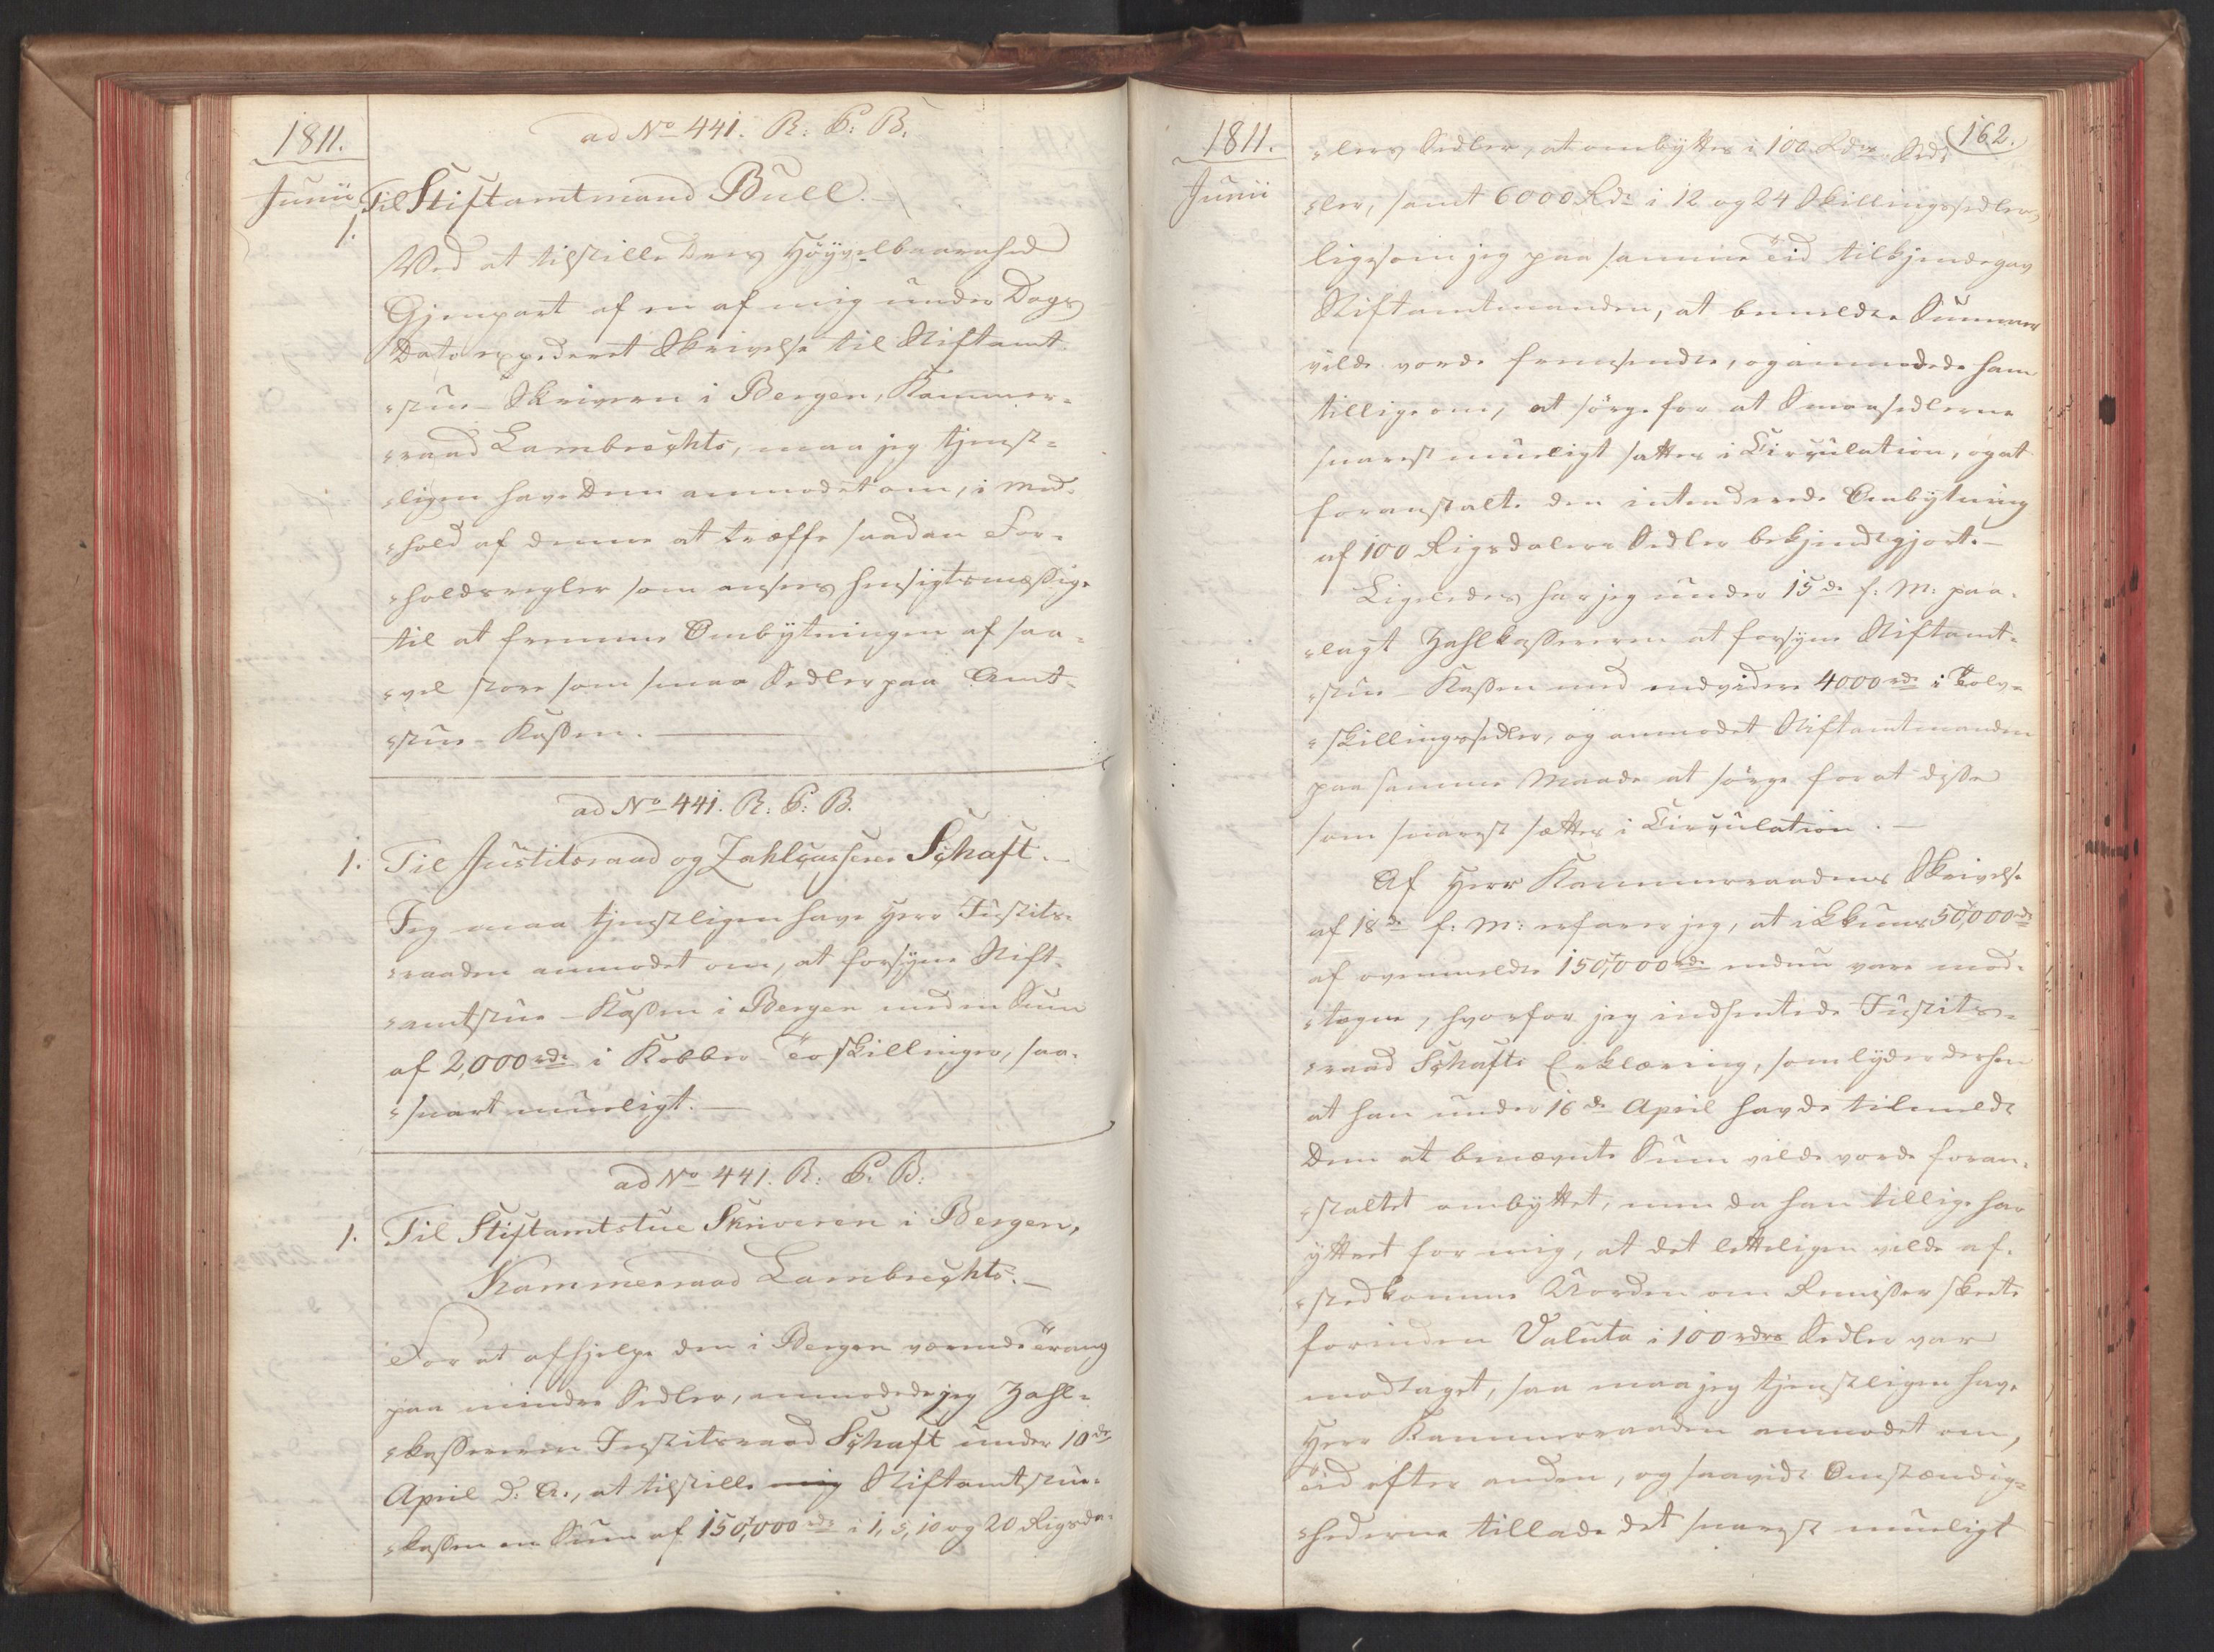 1811.
ad No 441. R: C: B.
Junii
Til Stiftamtmand Bull.
1.
Ved at tilstille Deres Höyvelbaarenhed
Gjenpart af en af mig under Dags
Dato expederet Skrivelse til Stiftamt-
"stue-Skriveren i Bergen, Kammer-
"raad Lambreghts, maa jeg tjenst-
"ligen have Dem anmodet om, i Med-
"hold af denne at træffe saadan For-
"holdsregler som ansees hensigtsmæssige
til at fremme Ombytningen af saa-
"vel store som smaa Sedler paa Amt-
"stue-Kassen.
ad No 441. R: C: B.
1. Til Justitsraad og Zahlcasserer Schaft.
Jeg maa tjenstligen have Herr Justits-
"raaden anmodet om, at forsyne Stift-
"amtstue-Kassen i Bergen med en Sum
af 2,000 rdr i Kobber-Toskillinger, saa-
"snart mueligt.
ad No 441. R: C: B:
1. Til Stiftamtstue Skriveren i Bergen,
Kammerraad Lambreghts.
For at afhjelpe den i Bergen værende Trang
paa mindre Sedler, anmodede jeg Zahl-
"kassereren Justitsraad Schaft under 10de
April d. A., at tilstille mig Stiftamtstue-
"kassen en Sum af 150,000 rdr i 1, 5, 10 og 20 Rigsda-
1811.
162.
Junii
"lers Sedler, at ombyttes i 100 Rdrs Sed-
"ler, samt 6000 Rdr i 12 og 24 Skillingssedler,
ligesom jeg paa samme Tid tilkjendegav
Stiftamtmanden, at bemeldte Summer
vilde vorde fremsendte, og anmodede ham
tillige om, at sörge for at Smaasedlerne
snarest mueligt sattes i Circulation, og at
foranstalte den intenderede Ombytning
af 100 Rigsdalers Sedler bekjendtgjort.
Ligeledes har jeg under 15de f: M: paa-
"lagt Zahlkassereren at forsyne Stiftamt-
"stue-Kassen med endvidere 4000 rdr i Tolv-
"skillingssedler, og anmodet Stiftamtmanden
paa samme Maade at sörge for at disse
som snarest sættes i Circulation.
Af Herr Kammerraadens Skrivelse
af 18de f: M: erfarer jeg, at ikkuns 50,000 rdr
af ovenmeldte 150,000 rdr endnu vare mod-
"tagne, hvorfor jeg indhentede Justits-
"raad Schafts Erklæring, som lyder derhen
at han under 16de April havde tilmeldt
Dem at benævnte Sum vilde vorde foran-
"staltet ombyttet, men da han tillige har
yttret for mig, at det letteligen vilde af-
"stedkomme Uorden om Remisser skeete
forinden Valuta i 100 rdrs Sedler var
modtaget, saa maa jeg tjenstligen have
Herr Kammerraaden anmodet om,
Tid efter anden, og saavidt Omstændig-
"hederne tillade det snarest mueligt